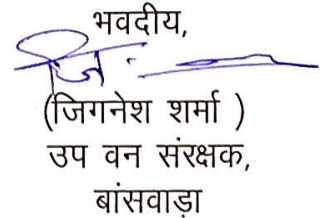 भवदीय,
जि.
(जिगनेश शर्मा )
उप वन संरक्षक,
बांसवाड़ा